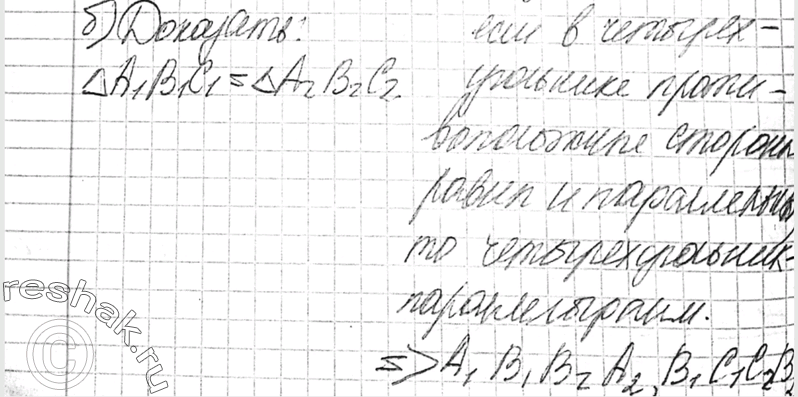 б) Доказать:
△A₁B₁C₁ = △A₂B₂C₂.
если в четырех-
угольнике проти-
воположные стороны
равны и параллельны,
то четырехугольник-
параллелограмм.
=> A₁B₁B₂A₂, B₁C₁C₂B₂
reshak.ru
©